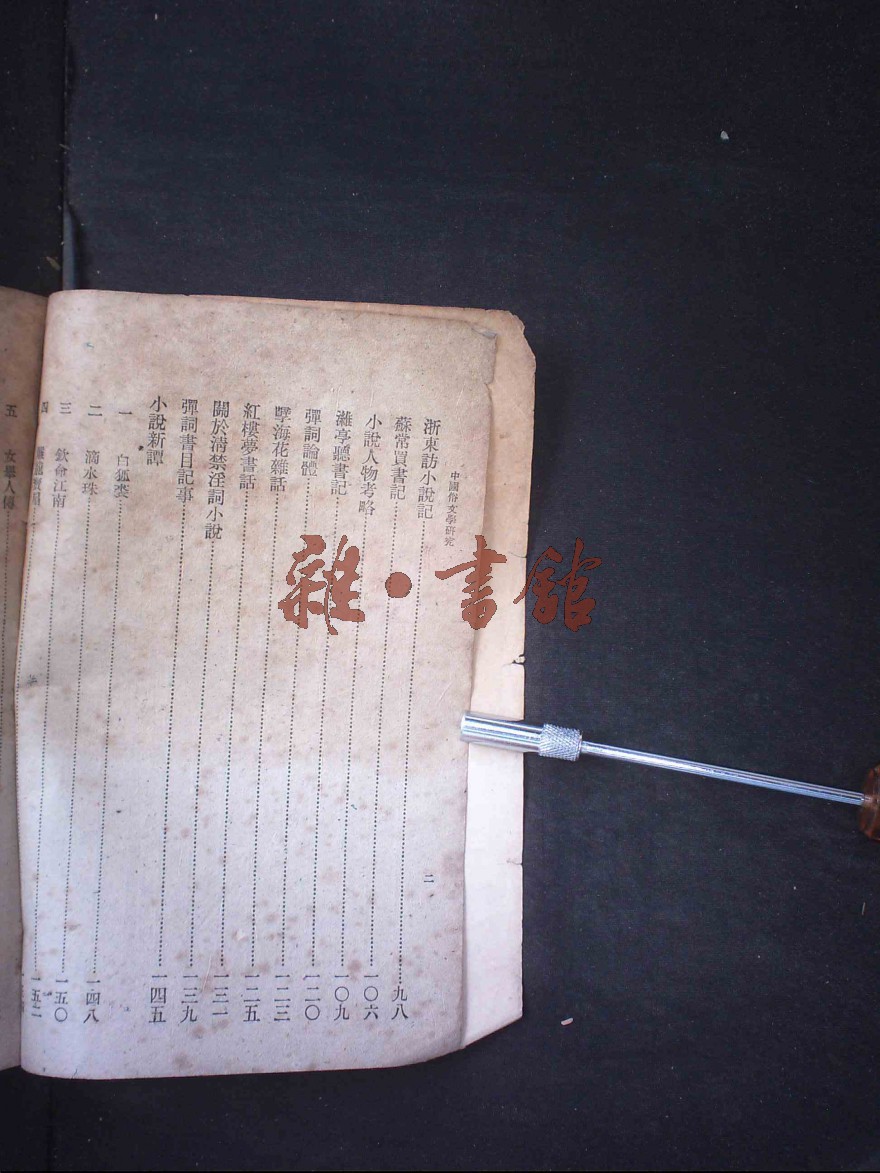 中國俗文學研究
二
浙東訪小說記
蘇常買書記……九八
小說人物考略……一〇六
灘亭聽書記……一〇九
彈詞論體……一二〇
孽海花雜話……一二三
紅樓夢書話……一二五
關於清禁淫詞小說……一三一
彈詞書目記事……一三九
小說新譚……一四五
一 白狐裘……
二 滴水珠……一四八
三 欽命江南……一五〇
四
五 女舉人傳……
雜·書館